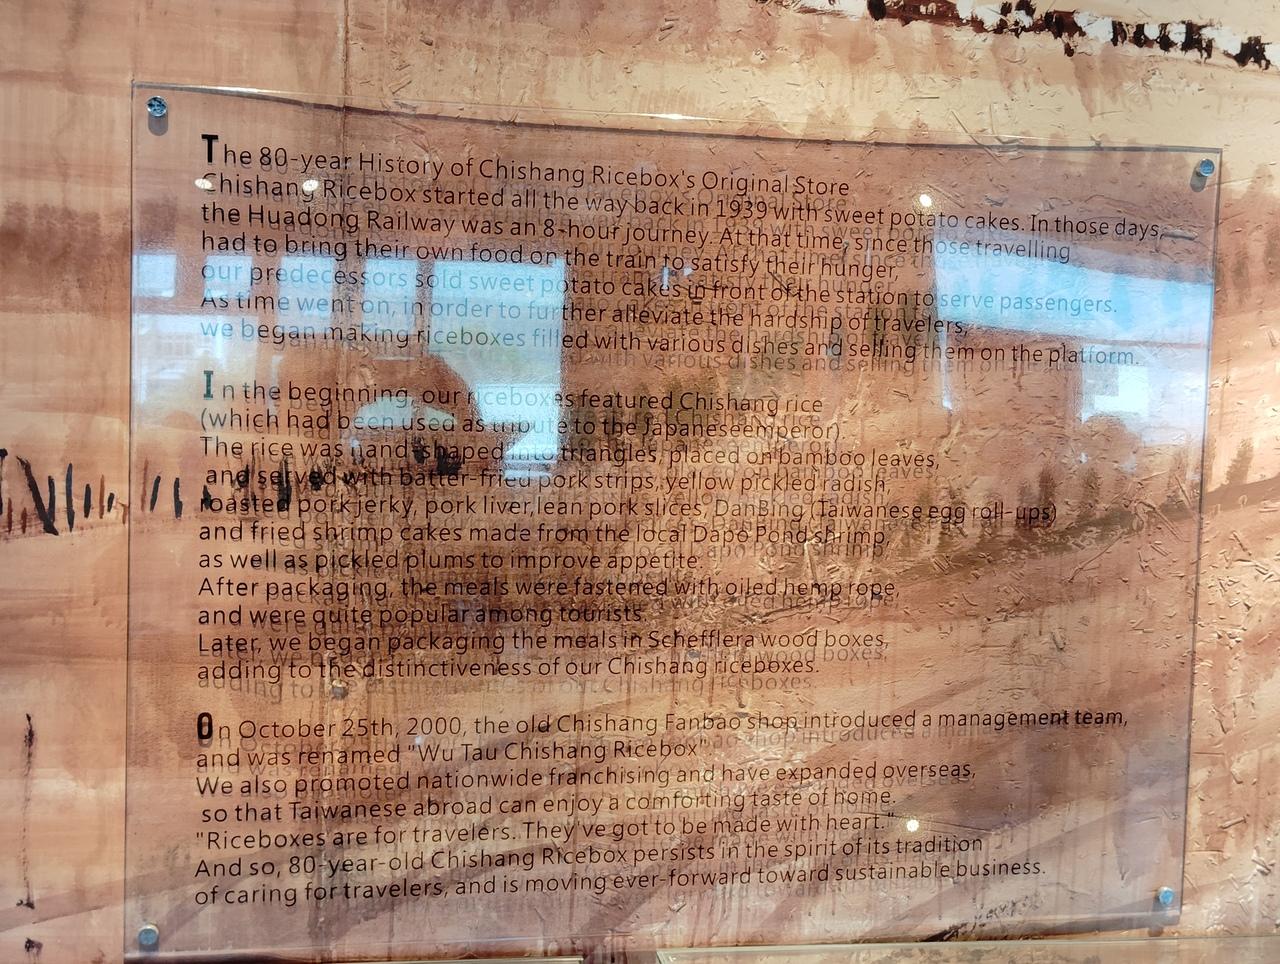 The 80-year History of Chishang Ricebox's Original Store
Chishang Ricebox started all the way back in 1939 with sweet potato cakes. In those days,
the Huadong Railway was an 8-hour journey. At that time, since those travelling
had to bring their own food on the train to satisfy their hunger,
our predecessors sold sweet potato cakes in front of the station to serve passengers.
As time went on, in order to further alleviate the hardship of travelers,
we began making riceboxes filled with various dishes and selling them on the platform.
In the beginning, our riceboxes featured Chishang rice
(which had been used as tribute to the Japaneseemperor).
The rice was hand-shaped into triangles, placed on bamboo leaves,
and served with batter-fried pork strips, yellow pickled radish,
roasted pork jerky, pork liver,lean pork slices, DanBing (Taiwanese egg roll-ups)
and fried shrimp cakes made from the local Dapo Pond shrimp,
as well as pickled plums to improve appetite.
After packaging, the meals were fastened with oiled hemp rope,
and were quite popular among tourists.
Later, we began packaging the meals in Schefflera wood boxes,
adding to the distinctiveness of our Chishang riceboxes.
On October 25th, 2000, the old Chishang Fanbao shop introduced a management team,
and was renamed "Wu Tau Chishang Ricebox".
We also promoted nationwide franchising and have expanded overseas,
so that Taiwanese abroad can enjoy a comforting taste of home.
"Riceboxes are for travelers. They've got to be made with heart."
And so, 80-year-old Chishang Ricebox persists in the spirit of its tradition
of caring for travelers, and is moving ever-forward toward sustainable business.